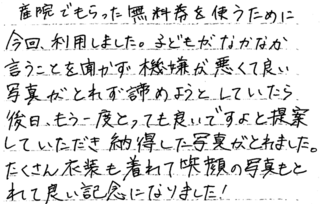 産院でもらった無料券を使うために
今回、利用しました。子どもがなかなか
言うことを聞かず機嫌が悪くて良い
写真がとれず諦めようとしていたら
後日、もう一度とっても良いですよと提案
していただき納得した写真がとれました。
たくさん衣装も着れて笑顔の写真もと
れて良い記念になりました!